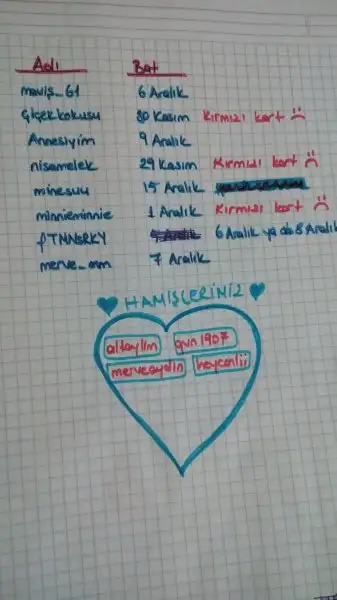 Adı Bat
maviş_61 6 Aralık
Çiçekkokusu 30 Kasım Kırmızı kart
Annesiyim 9 Aralık
nisamelek 29 Kasım Kırmızı kart
minesuu 15 Aralık
minnieminnie 1 Aralık Kırmızı kart
fTMNSRKY 6 Aralık ya da 8 Aralık
merve_mm 7 Aralık
HAMİŞLERİMİZ
altaylım gun1907
merveaydin heycanlii